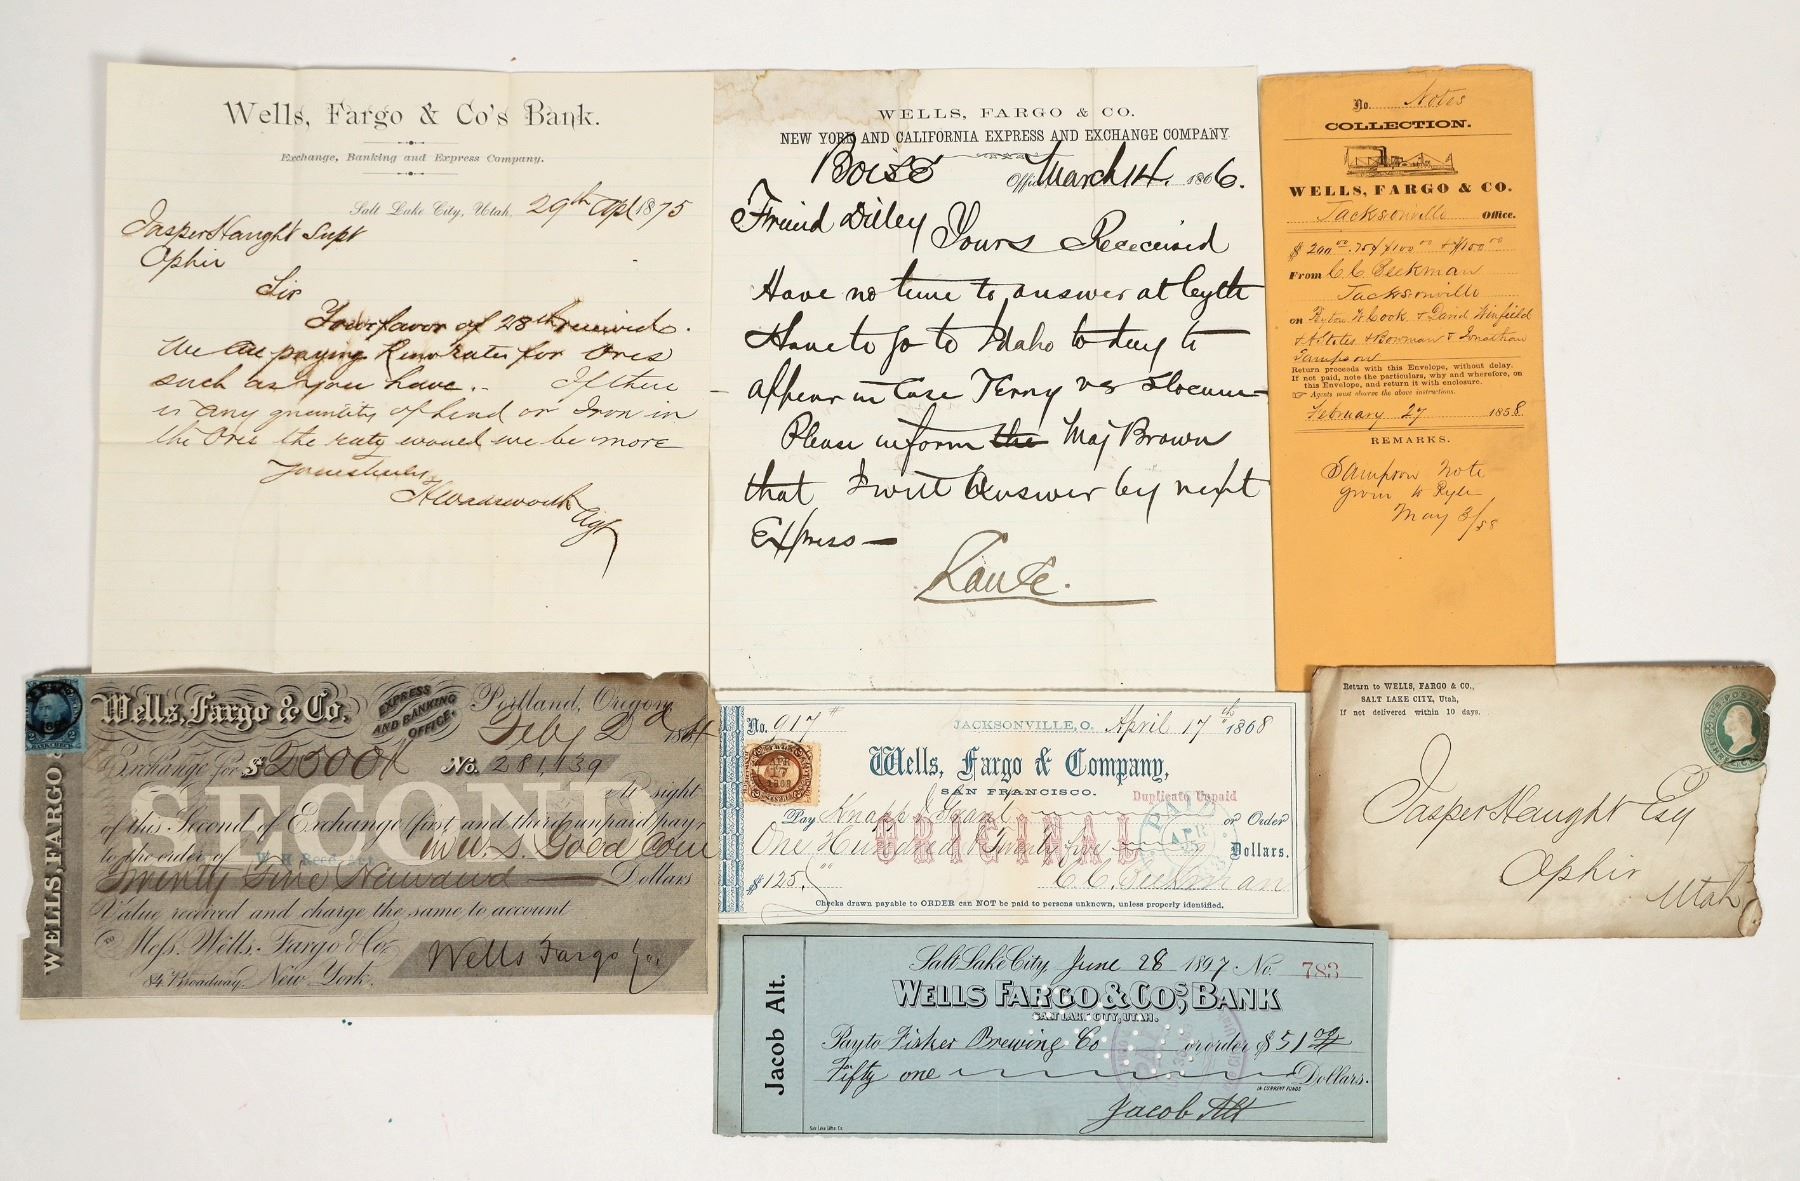 Wells, Fargo & Co's Bank.
Exchange, Banking and Express Company.
Salt Lake City, Utah, 29th Apl 1875
Jasper Haught Supt
Ophir
Sir
Your favor of 28th received.
We are paying Reno rates for Ores
such as you have. If there
is any quantity of Lead or Iron in
the Ores the rates would be more
Yours truly
H Wadsworth
Agt
WELLS, FARGO & CO.
NEW YORK AND CALIFORNIA EXPRESS AND EXCHANGE COMPANY
Boise Office March 14. 1866.
Friend Dilley Yours Receceived
Have no time to answer at
Have to go to Idaho to day to
appear in Case Terry vs Slocum
Please inform the Maj Brown
that I will Answer by next
Express —
No. Notes
COLLECTION.
WELLS, FARGO & CO.
Jacksonville Office.
From C. C. Beekman
Jacksonville
on W Cook & David Winfield
& Bowman & Jonathan
Sampson
Return proceeds with this Envelope, without delay.
If not paid, note the particulars, why and wherefore, on
this Envelope, and return it with enclosure.
Agents must observe the above instructions.
February 27 1858.
REMARKS.
Sampson Note
given to Ryle
May 3/58
WELLS, FARGO &
Wells, Fargo & Co.
EXPRESS
AND BANKING
OFFICE.
Portland, Oregon,
Feby 2 1864
Exchange for $ 2500 No. 281,139
SECOND
At sight
of this Second of Exchange (first and third unpaid) pay
to the order of W H Reed Agt in U. S. Gold Coin
Twenty Five Hundred Dollars
Value received and charge the same to account
To Mess. Wells, Fargo & Co.
84 Broadway, New York.
Wells Fargo & Co
No. 917 JACKSONVILLE, O. April 17th 1868
APR
17
1868
Wells, Fargo & Company,
SAN FRANCISCO.
Duplicate Unpaid
Pay Knapp & Grant or Order
ORIGINAL
PAID
APR
One Hundred & Twenty five Dollars.
$ 125. C. C. Beekman
Checks drawn payable to ORDER can NOT be paid to persons unknown, unless properly identified.
Return to WELLS, FARGO & CO.,
SALT LAKE CITY, Utah,
If not delivered within 10 days.
Jasper Haught Esq
Ophir
Utah
Jacob Alt.
Salt Lake City, June 28 1897 No. 783
WELLS FARGO & CO'S BANK
SALT LAKE CITY, UTAH.
Pay to Fisher Brewing Co or order $ 51 00
Fifty one Dollars.
IN CURRENT FUNDS
Jacob Alt
Salt Lake Litho. Co.